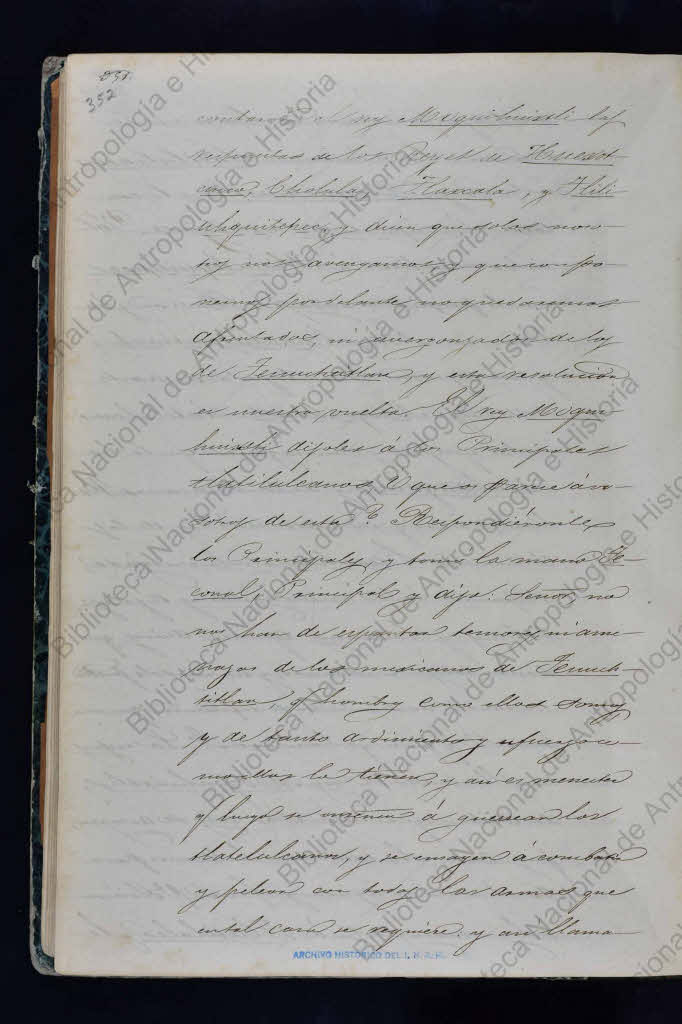 251.
352
contaron el rey Moquihuixtli las
respuestas de los Reyes de Huexot-
cinco, Cholula, Tlaxcala, y Tlili-
uhquitepec, y dicen que solos noso-
tros nos avengamos, y que con po-
nernos por delante no quedaremos
afrentados, ni avergonzados de los
de Tenuchtitlan, y esta resolucion
es nuestra vuelta. El rey Moqui-
huixtli dijoles á los Principales
tlatilulcanos O que os parece á vo-
sotros de esta? Respondiéronle
los Principales, y tomó la mano Te-
conal, Principal y dijo: Señor, no
nos han de espantar temores, ni ame-
nazas de los mexicanos de Tenuch-
titlan, q hombres como ellos somos
y de tanto ardimiento y esfuerzo co-
mo ellos le tienen, y así es menester
q luego se enseñen á guerrear los
tlatelulcanos, y se ensayen á combatir
y pelear con todas las armas que
en tal caso se requiere, y así llama-
ARCHIVO HISTORICO DEL I. N. A. H.
Biblioteca Nacional de Antropología e Historia